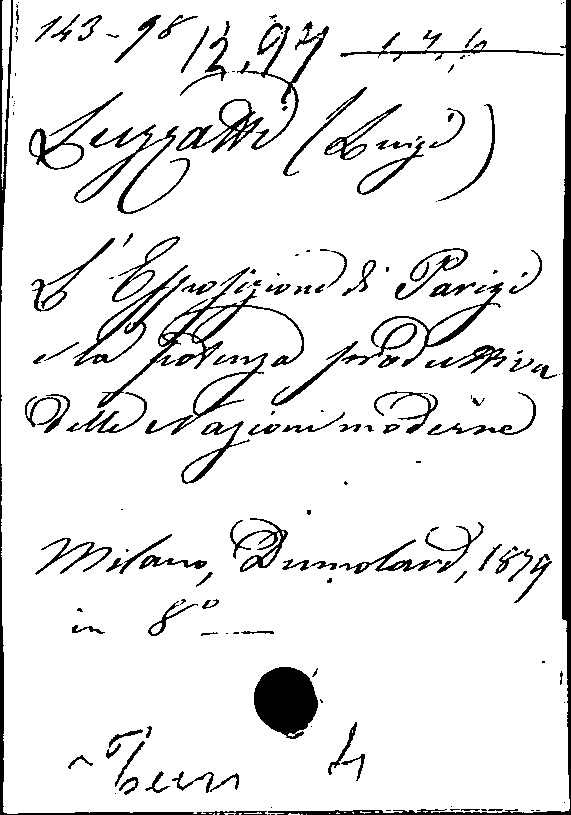 143-98 12,97 1,7,6
Luzzatti (Luigi)
L'Esposizione di Parigi
e la potenza produttiva
delle Nazioni moderne
Milano, Dumolard, 1879
in 8°